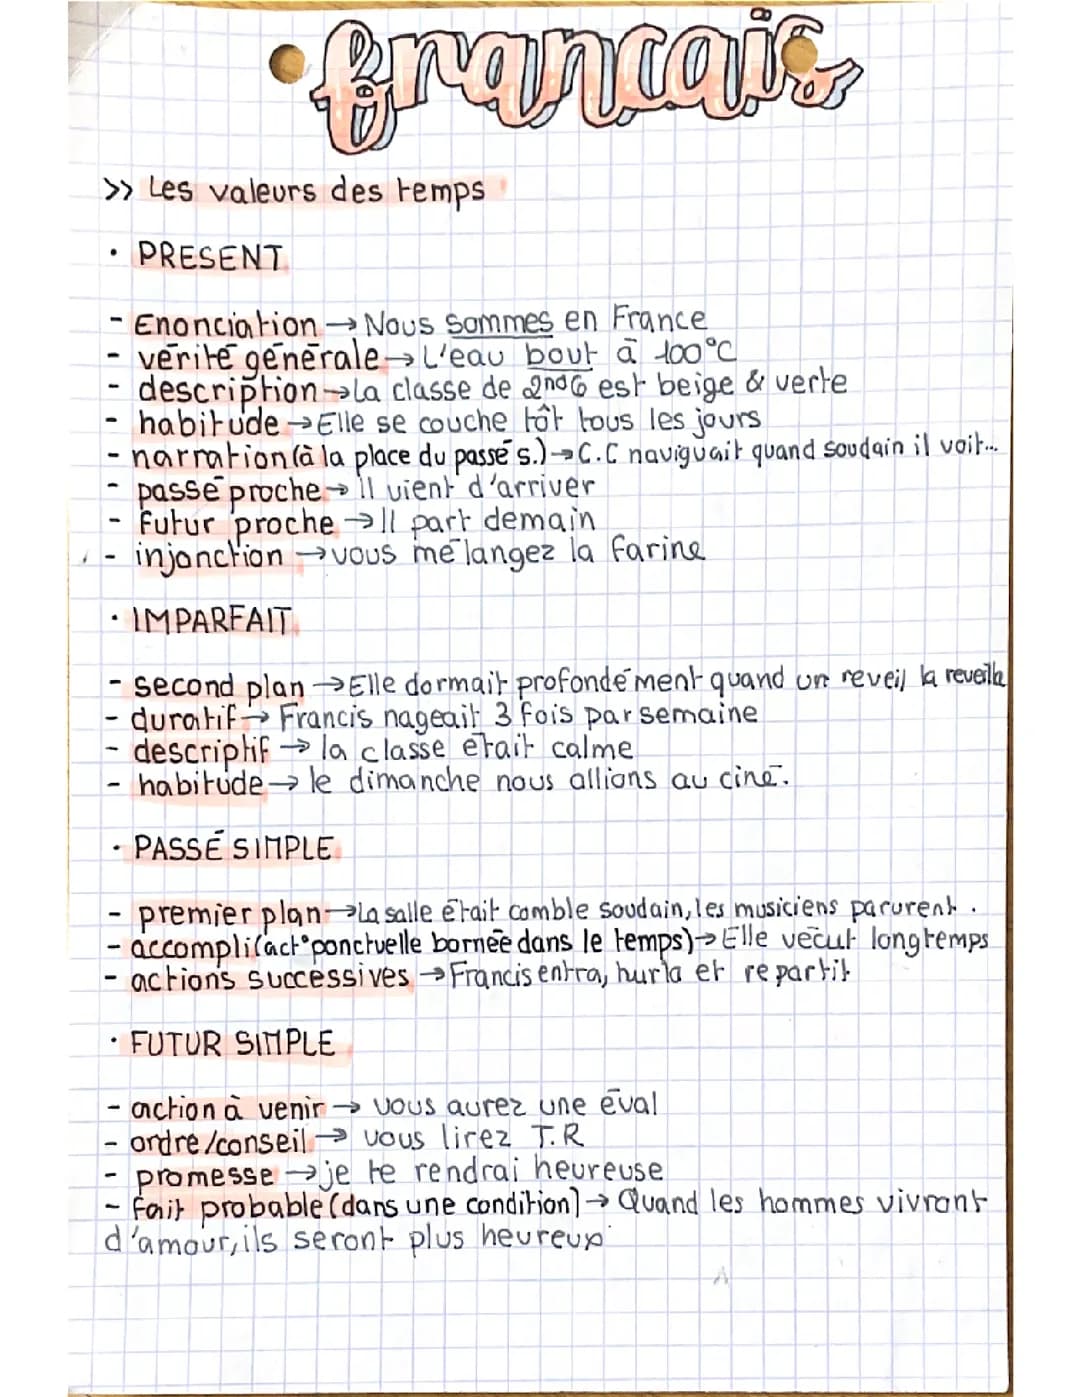 francais
>> Les valeurs des temps
· PRESENT
- Enonciation → Nous sommes en France
- vérité générale → L'eau bout à 100°C
- description → la classe de 2nd6 est beige & verte
- habitude → Elle se couche tôt tous les jours
- narration (à la place du passé s.) → C.C naviguait quand soudain il voit...
- passé proche → Il vient d'arriver
- futur proche → Il part demain
- injonction → vous mélangez la farine
· IMPARFAIT
- second plan → Elle dormait profondément quand un reveil la reveilla
- duratif → Francis nageait 3 fois par semaine
- descriptif → la classe était calme
- habitude → le dimanche nous allions au ciné.
· PASSÉ SIMPLE
- premier plan → La salle était comble soudain, les musiciens parurent.
- accompli (act° ponctuelle bornée dans le temps) → Elle vécut longtemps
- actions successives → Francis entra, hurla et repartit
· FUTUR SIMPLE
- action à venir → vous aurez une éval
- ordre/conseil → vous lirez T.R
- promesse → je te rendrai heureuse
- fait probable (dans une condition) → Quand les hommes vivront
d'amour, ils seront plus heureux